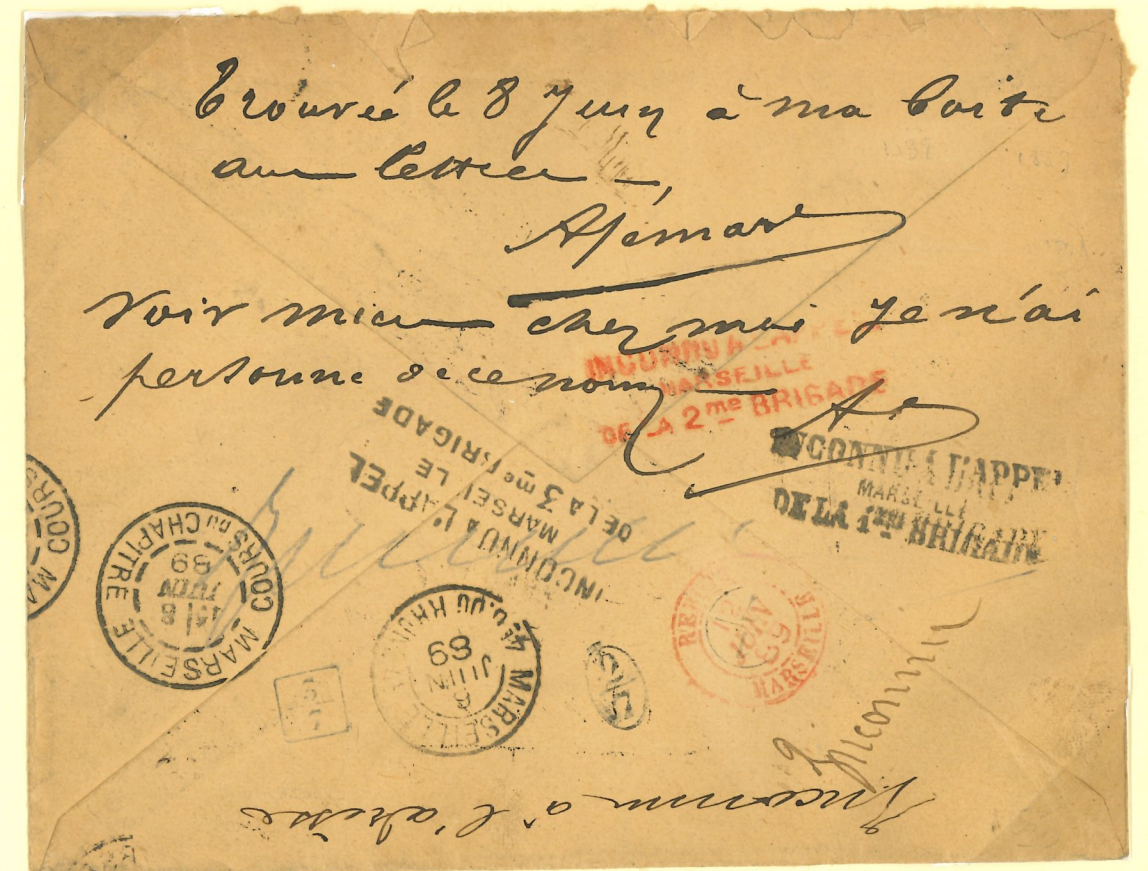 Trouvée le 8 Juin à ma boite
aux lettres
Voir mieux chez moi je n'ai
personne de ce nom
INCONNU A L'APPEL
MARSEILLE
DE LA 2me BRIGADE
INCONNU A L'APPEL
MARSEILLE
DE LA 1ère BRIGADE
INCONNU A L'APPEL
MARSEILLE
DE LA 3me BRIGADE
MARSEILLE COURS DU CHAPITRE
8
JUIN
89
COURS MA
MARSEILLE
JUIN
89
MARSEILLE
89
5
7
Inconnu
Inconnu à l'adresse